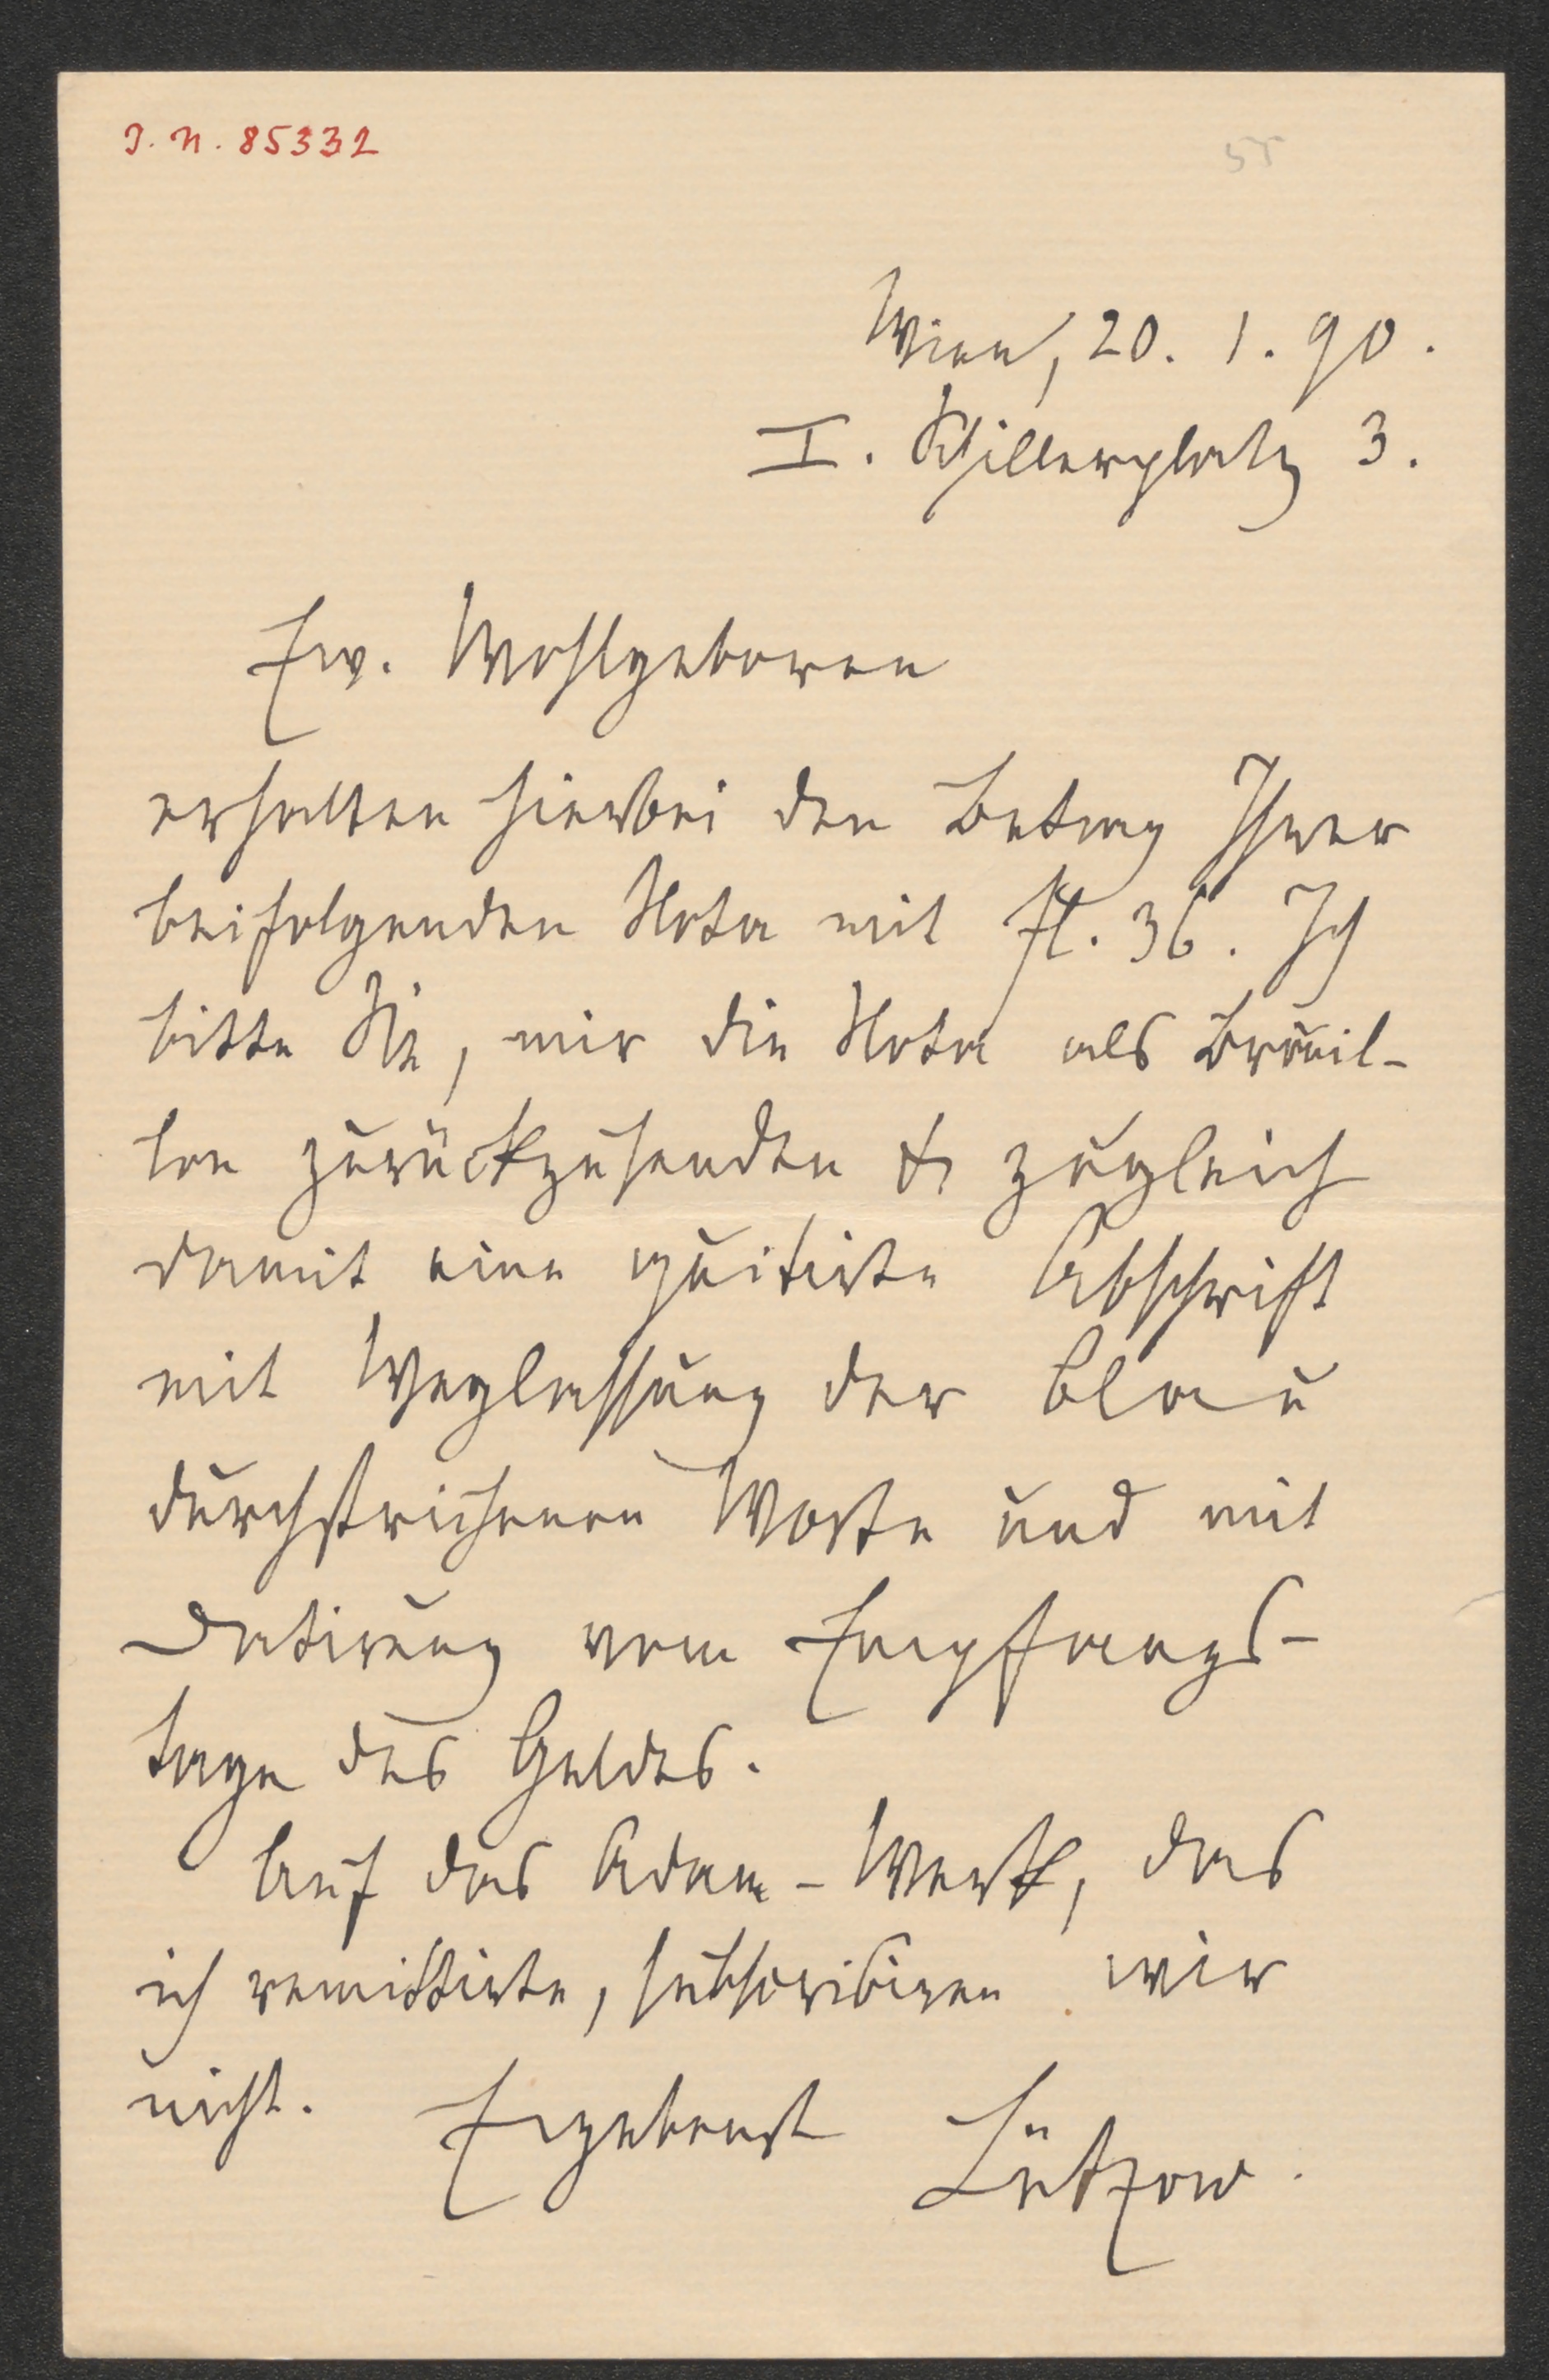 J. N. 85332
55
Wien, 20. 1. 90.
I. Schillerplatz 3.
Ew. Wohlgeboren
erhalten hierbei den Betrag Ihrer
beifolgenden Nota mit fl. 36. Ich
bitte Sie, mir die Nota als Brouil-
lon zurückzusenden & zugleich
damit eine quitirte Abschrift
mit Weglassung der blau
durchstrichenen Worte und mit
Datirung vom Empfangs-
tage des Geldes.
Auf das Adam-Werk, das
ich remittirte, subscribiren wir
nicht. Ergebenst Lützow.